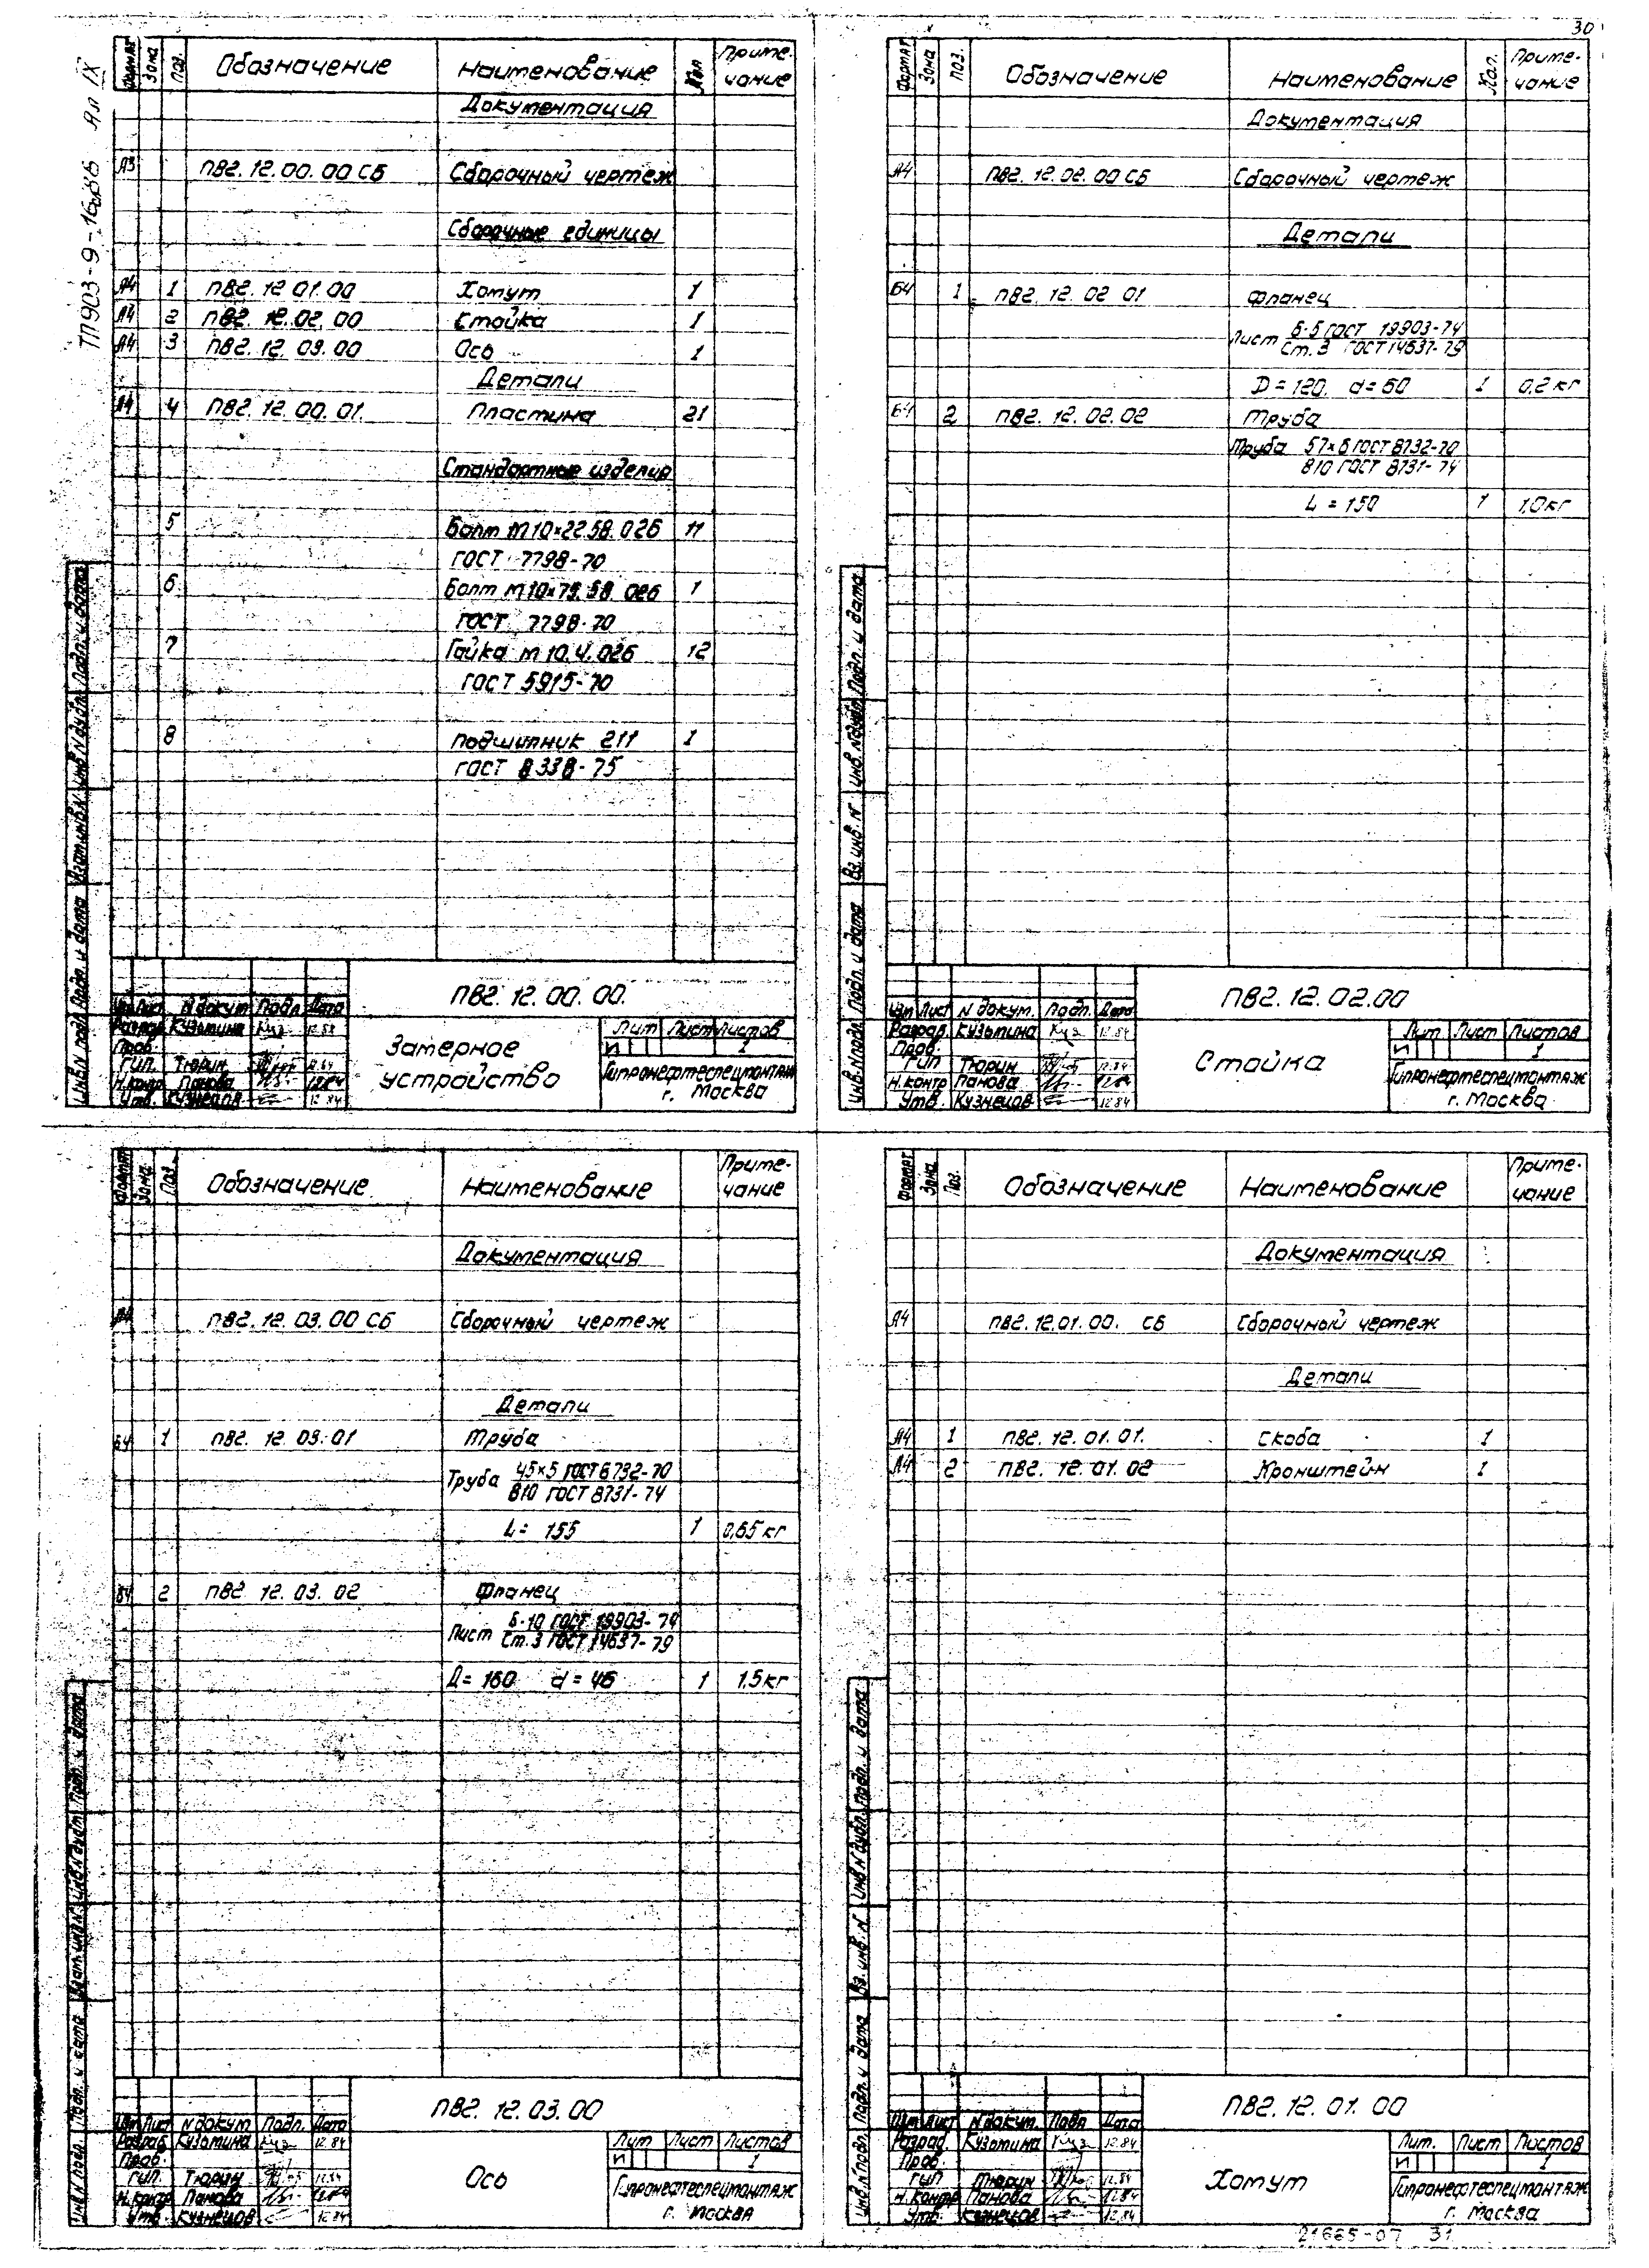 30
ТП903-9-16.86 Ал IX
Формат Зона Поз. Обозначение Наименование Кол. Приме-
чание
Документация
А3 ПВ2.12.00.00 СБ Сборочный чертеж
Сборочные единицы
А4 1 ПВ2.12 01.00 Хомут 1
А4 2 ПВ2.12.02.00 Стойка 1
А4 3 ПВ2.12.03.00 Ось 1
Детали
А4 4 ПВ2.12.00.01. Пластина 21
Стандартные изделия
5 Болт М10×22.58.026 11
ГОСТ 7798-70
6 Болт М10×75.58.026 1
ГОСТ 7798-70
7 Гайка М10.4.026 12
ГОСТ 5915-70
8 Подшипник 211 1
ГОСТ 8338-75
Инв.N подл. Подп. и дата Взам.инв.N Инв.N дубл. Подп. и дата
ПВ2.12.00.00.
Изм Лист N докум Подп. Дата
Разраб. Кузьмина 12.84
Пров.
ГИП. Тюрин 12.84
Н.контр Панова 12.84
Утв. Кузнецов 12.84
Затерное
устройство
Лит Лист Листов
И 1
Гипронефтеспецмонтаж
г. Москва
Формат Зона Поз. Обозначение Наименование Кол. Приме-
чание
Документация
А4 ПВ2.12.02.00 СБ Сборочный чертеж
Детали
Б4 1 ПВ2.12.02 01 Фланец
Лист Б-5 ГОСТ 19903-74
Ст.3 ГОСТ 14637-79
D=120. d=60 1 0,2 кг
Б4 2 ПВ2.12.02.02 Труба
Труба 57×6 ГОСТ 8732-70
В10 ГОСТ 8731-74
L=150 1 1,0 кг
Инв.N подл. Подп. и дата Вз. инв. N Инв.N дубл. Подп. и дата
ПВ2.12.02.00
Изм Лист N докум. Подп. Дата
Разраб. Кузьмина 12.84
Пров.
ГИП Тюрин 12.84
Н.контр Панова 12.84
Утв. Кузнецов 12.84
Стойка
Лит Лист Листов
И 1
Гипронефтеспецмонтаж
г. Москва
Формат Зона Поз. Обозначение Наименование Приме-
чание
Документация
А4 ПВ2.12.03.00 СБ Сборочный чертеж
Детали
Б4 1 ПВ2.12.03.01 Труба
Труба 45×5 ГОСТ 8732-70
В10 ГОСТ 8731-74
L= 155 1 0,65 кг
Б4 2 ПВ2 12.03.02 Фланец
Лист Б-10 ГОСТ 19903-74
Ст.3 ГОСТ 14637-79
Д=160 d=46 1 1.5 кг
Инв.N подл. Подп. и дата Взам.инв.N Инв.N дубл. Подп. и дата
ПВ2.12.03.00
Изм Лист N докум Подп. Дата
Разраб. Кузьмина 12.84
Пров.
ГИП. Тюрин 12.84
Н.контр Панова 12.84
Утв. Кузнецов 12.84
Ось
Лит Лист Листов
И 1
Гипронефтеспецмонтаж
г. Москва
Формат Зона Поз. Обозначение Наименование Приме-
чание
Документация
А4 ПВ2.12.01.00. СБ Сборочный чертеж
Детали
А4 1 ПВ2.12.01.01. Скоба 1
А4 2 ПВ2.12.01.02 Кронштейн 1
Инв.N подл. Подп. и дата Вз. инв. N Инв.N дубл. Подп. и дата
ПВ2.12.01.00
Изм Лист N докум. Подп Дата
Разраб. Кузьмина 12.84
Пров.
ГИП Тюрин 12.84
Н.контр Панова 12.84
Утв. Кузнецов 12.84
Хомут
Лит. Лист Листов
И 1
Гипронефтеспецмонтаж
г. Москва
21665-07 31